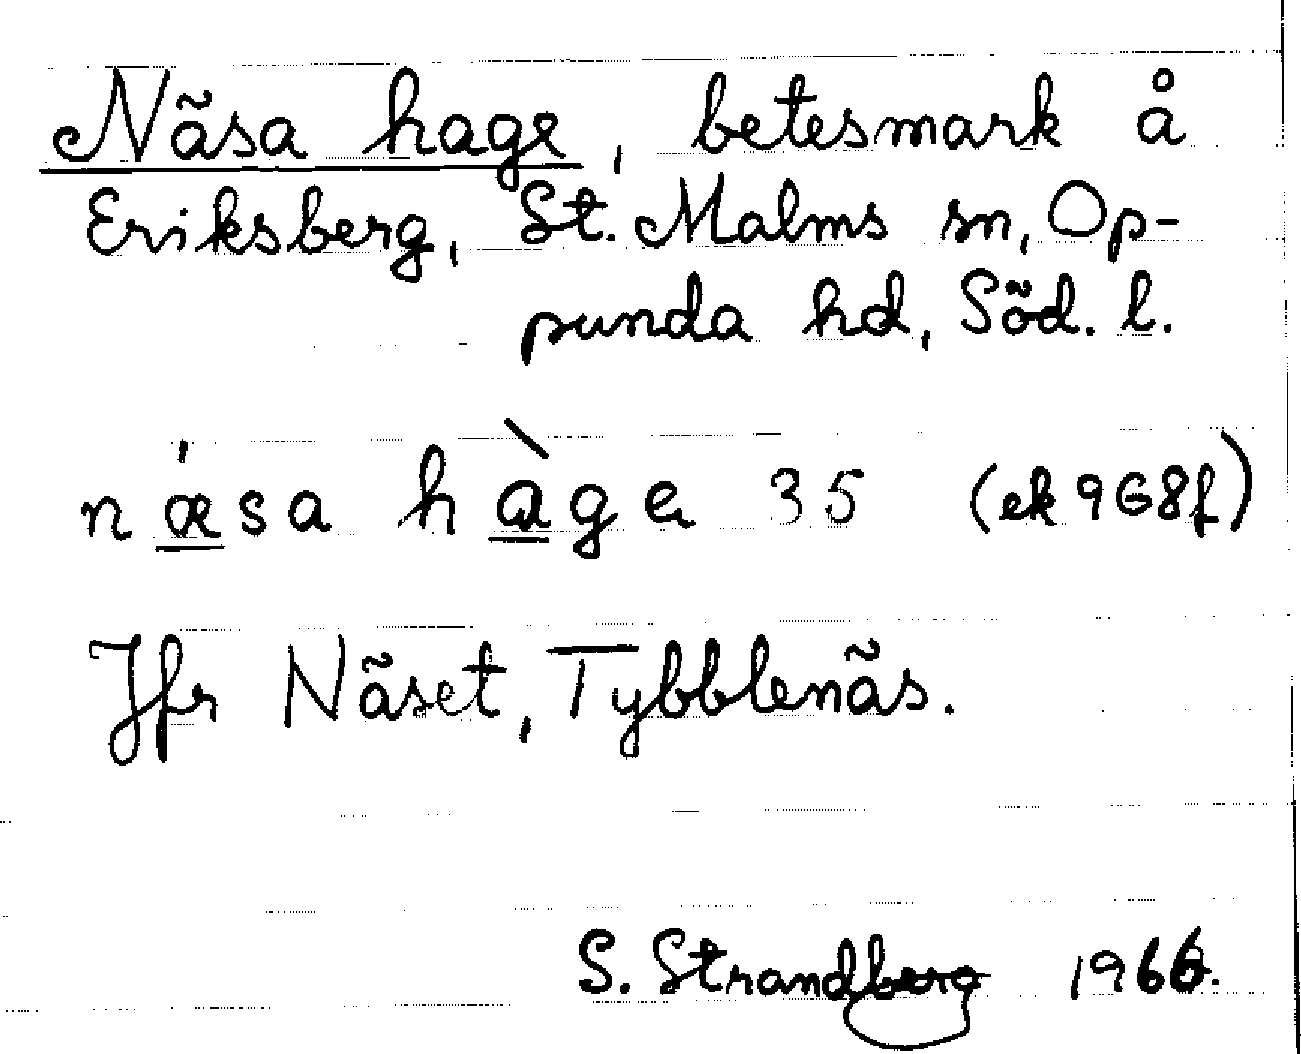 Näsa hage, betesmark å
Eriksberg, St. Malms sn, Op-
punda hd, Söd. l.
nǽsa hàge 35 (ek 968f)
Jfr Näset, Tybblenäs.
S. Strandberg 1966.